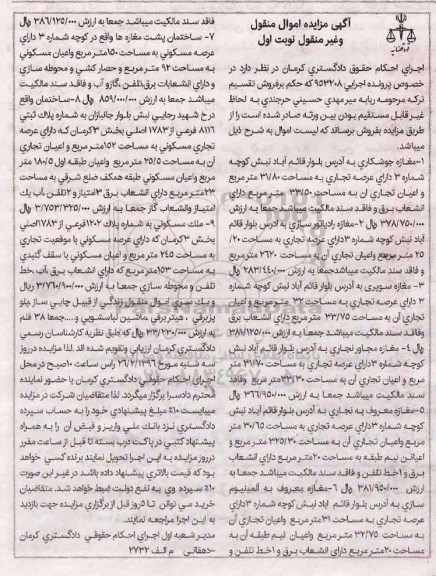 آگهی مزایده اموال منقول
وغیر منقول نوبت اول
اجرای احکام حقوق دادگستری کرمان در نظر دارد در
خصوص پرونده اجرایی ۹۵۳۲۰۸ که حکم برفروش تقسیم
ترکه مرحومه ربابه میر مهدی حسینی حرجندی به لحاظ
غیر قابل مستقیم بودن بین ورثه صادر شده است را از
طریق مزایده بفروش برساند که لیست اموال به شرح ذیل
میباشد.
۱-مغازه جوشکاری به آدرس بلوار قائم آباد نبش کوچه
شماره ۳ دارای عرصه تجاری به مساحت ۳۱/۸۰ متر مربع
و اعیان تجاری آن به مساحت ۳۳/۵۰ متر مربع دارای
انشعاب برق و فاقد سند مالکیت میباشد جمعا به ارزش
۳۷۸/۷۵۰/۰۰۰ ریال ۲-مغازه رادیاتور سازی به آدرس بلوار قائم
آباد نبش کوچه شماره ۳دارای عرصه تجاری به مساحت ۲۰/
۲۵ متر مربع واعیان تجاری آن به مساحت ۲۶/۲۰ متر مربع
و فاقد سند مالکیت میباشدجمعا به ارزش ۲۸۳/۴۴۰/۰۰۰ ریال
۳- مغازه سوپری به آدرس بلوار قائم آباد نبش کوچه شماره
۳ دارای عرصه تجاری به مساحت ۳۲ متر مربع و اعیان
تجاری آن به مساحت ۳۳/۷۵ متر مربع دارای انشعاب برق
وفاقد سند مالکیت میباشد جمعا به ارزش ۳۸۱/۱۲۵/۰۰۰
ریال ۴- مغازه مجاور نجاری به آدرس بلوار قائم آباد نبش
کوچه شماره ۳دارای عرصه تجاری به مساحت ۳۱/۷۰ متر
مربع و اعیان تجاری آن به مساحت ۳۳/۳۰ متر مربع وفاقد
سند مالکیت میباشد جمعا به ارزش ۳۶۶/۹۵۰/۰۰۰ ریال
۵-مغازه معروف به نجاری به آدرس بلوار قائم آباد نبش
کوچه شماره ۳دارای عرصه تجاری به مساحت ۳۰/۶۵ متر
مربع واعیان تجاری آن به مساحت ۳۲۵/۳۰ متر مربع و
اعیانی نیم طبقه به مساحت ۲۰متر مربع دارای انشعاب
برق و ۱خط تلفن و فاقد سند مالکیت میباشد جمعا به
ارزش ۳۸۱/۹۵۰/۰۰۰ ریال ۶-مغازه معروف به آلمینیوم
سازی به آدرس بلوار قائم آباد نبش کوچه شماره ۳دارای
عرصه تجاری به مساحت ۳۱متر مربع واعیان تجاری آن
به مساحت ۳۲/۷۵ متر مربع واعیان نیم طبقه آن به
مساحت ۲۰متر مربع دارای انشعاب برق و ۱خط تلفن و
فاقد سند مالکیت میباشد جمعا به ارزش ۳۸۶/۱۲۵/۰۰۰ ریال
۷- ساختمان پشت مغازه ها واقع در کوچه شماره ۳ دارای
عرصه مسکونی به مساحت ۱۵۰متر مربع واعیان مسکونی
به مساحت ۹۲ متر مربع و حصار کشی و محوطه سازی
و دارای انشعابات برق،تلفن ،گازو آب و فاقد سند مالکیت
میباشد جمعا به ارزش ۸۵۹/۰۰۰/۰۰۰ ریال ۸-ساختمان واقع
در خ شهید رجایی نبش بلوار جانبازان به شماره پلاک ثبتی
۸۱۱۶ فرعی از ۱۷۸۳ اصلی بخش ۳کرمان که دارای عرصه
تجاری مسکونی به مساحت ۱۵۲متر مربع و اعیان تجاری
آن به مساحت ۲۵/۵ متر مربع واعیان طبقه اول ۱۸۰/۵ متر
مربع واعیان مسکونی طبقه همکف ضلع شرقی به مساحت
۲۳متر مربع دارای انشعاب برق ۳امتیاز و ۲تلفن ،آب یک
امتیاز وانشعاب گاز جمعا به ارزش ۳/۷۵۳/۳۲۵/۰۰۰ ریال
۹-ملک مسکونی به شماره پلاک ۱۲۰۲فرعی از ۱۷۸۳اصلی
بخش ۳کرمان که دارای عرصه مسکونی با موقعیت تجاری
به مساحت ۲۴۵ متر مربع و اعیان مسکونی با سقف گنبدی
به مساحت ۱۵۳متر مربع که دارای انشعاب برق ،آب ،خط
تلفن و محوطه سازی جمعا به ارزش ۳/۷۶۰/۹۰۰/۰۰۰ ریال
و یک سری اموال منقول زندگی از قبیل چایی ساز پلو
پزبرقی ، هیتربرقی ماشین لباسشویی و....جمعا ۳۸ قلم
به ارزش ۳۳/۲۳۰/۰۰۰ ریال که طبق نظریه کارشناسان رسمی
دادگستری کرمان ارزیابی وتقویم شده اند .لذا مزایده درروز
سه شنبه مورخ ۲۶/۲/۱۳۹۶ راس ساعت ۱۰صبح در محل
اجرای احکام حقوقی دادگستری کرمان با حضور نماینده
محترم دادسرا برگزار میگردد. لذا متقاضیان شرکت در مزایده
میبایست ۱۰٪ مبلغ پیشنهادی خود را به حساب سپرده
دادگستری نزد بانک ملی واریز و فیش آن را به همراه
پیشنهاد کتبی در پاکت درب بسته تا قبل از ساعت مقرر
درروز مزایده به این اجرا تحویل نمایند برنده کسی خواهد
بود که قیمت بالاتری پیشنهاد داده باشد در غیر این صورت
۱۰٪ سپرده وی به نفع دولت ضبط خواهد شد. متقاضیان
خرید می توانن تا ۵روز قبل از برگزاری مزایده جهت بازدید
به این اجرا مراجعه نمایند.
مدیر شعبه اول اجرای احکام حقوقی دادگستری کرمان
-دهقانی م الف ۲۷۳۲